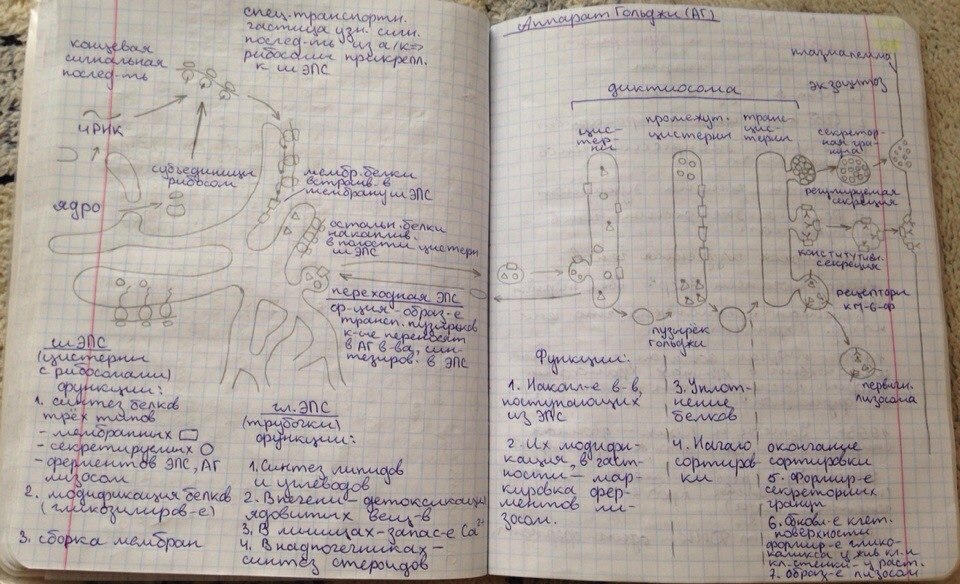 спец. транспортн.
частица узн. сигн.
послед-ть из а/к=>
рибосомы прикрепл.
к ш ЭПС
концевая
сигнальная
послед-ть
иРНК
субъединицы
рибосом
ядро
мембр. белки
встраив. в
мембрану ш ЭПС
остальн. белки
накаплив.
в полости цистерн
ш ЭПС
переходная ЭПС
ф-ция - образ-е
трансп. пузырьков
к-ые переносят
в АГ в-ва, син-
тезиров. в ЭПС
ш ЭПС
(цистерны
с рибосомами)
функции:
1. синтез белков
трёх типов
- мембранных
- секретируемых
- ферментов ЭПС, АГ
лизосом
2. модификация белков
(гликозилиров-е)
3. сборка мембран
гл. ЭПС
(трубочки)
функции:
1. Синтез липидов
и углеводов
2. В печени - детоксикация
ядовитых вещ-в
3. В мышцах - запас-е Ca²⁺
4. В надпочечниках -
синтез стероидов
Аппарат Гольджи (АГ)
плазмалемма
экзоцитоз
диктиосома
цис-
терны
промежут.
цистерны
транс-
цис-
терны
секретор-
ная гра-
нула
регулируемая
секреция
конститутивн.
секреция
рецепторы
к М-6-Ф
пузырёк
Гольджи
первичн.
лизосома
Функции:
1. Накопл-е в-в,
поступающих
из ЭПС
2. Их модифи-
кация, в част-
ности - мар-
кировка фер-
ментов ли-
зосом.
3. Уплот-
нение
белков
4. Начало
сортиров-
ки
окончание
сортировки
5. Формир-е
секреторных
гранул
6. Обновл-е клет.
поверхности
формир-е глико-
каликса у жив. кл. и
кл. стенки - у раст.
7. Образ-е лизосом